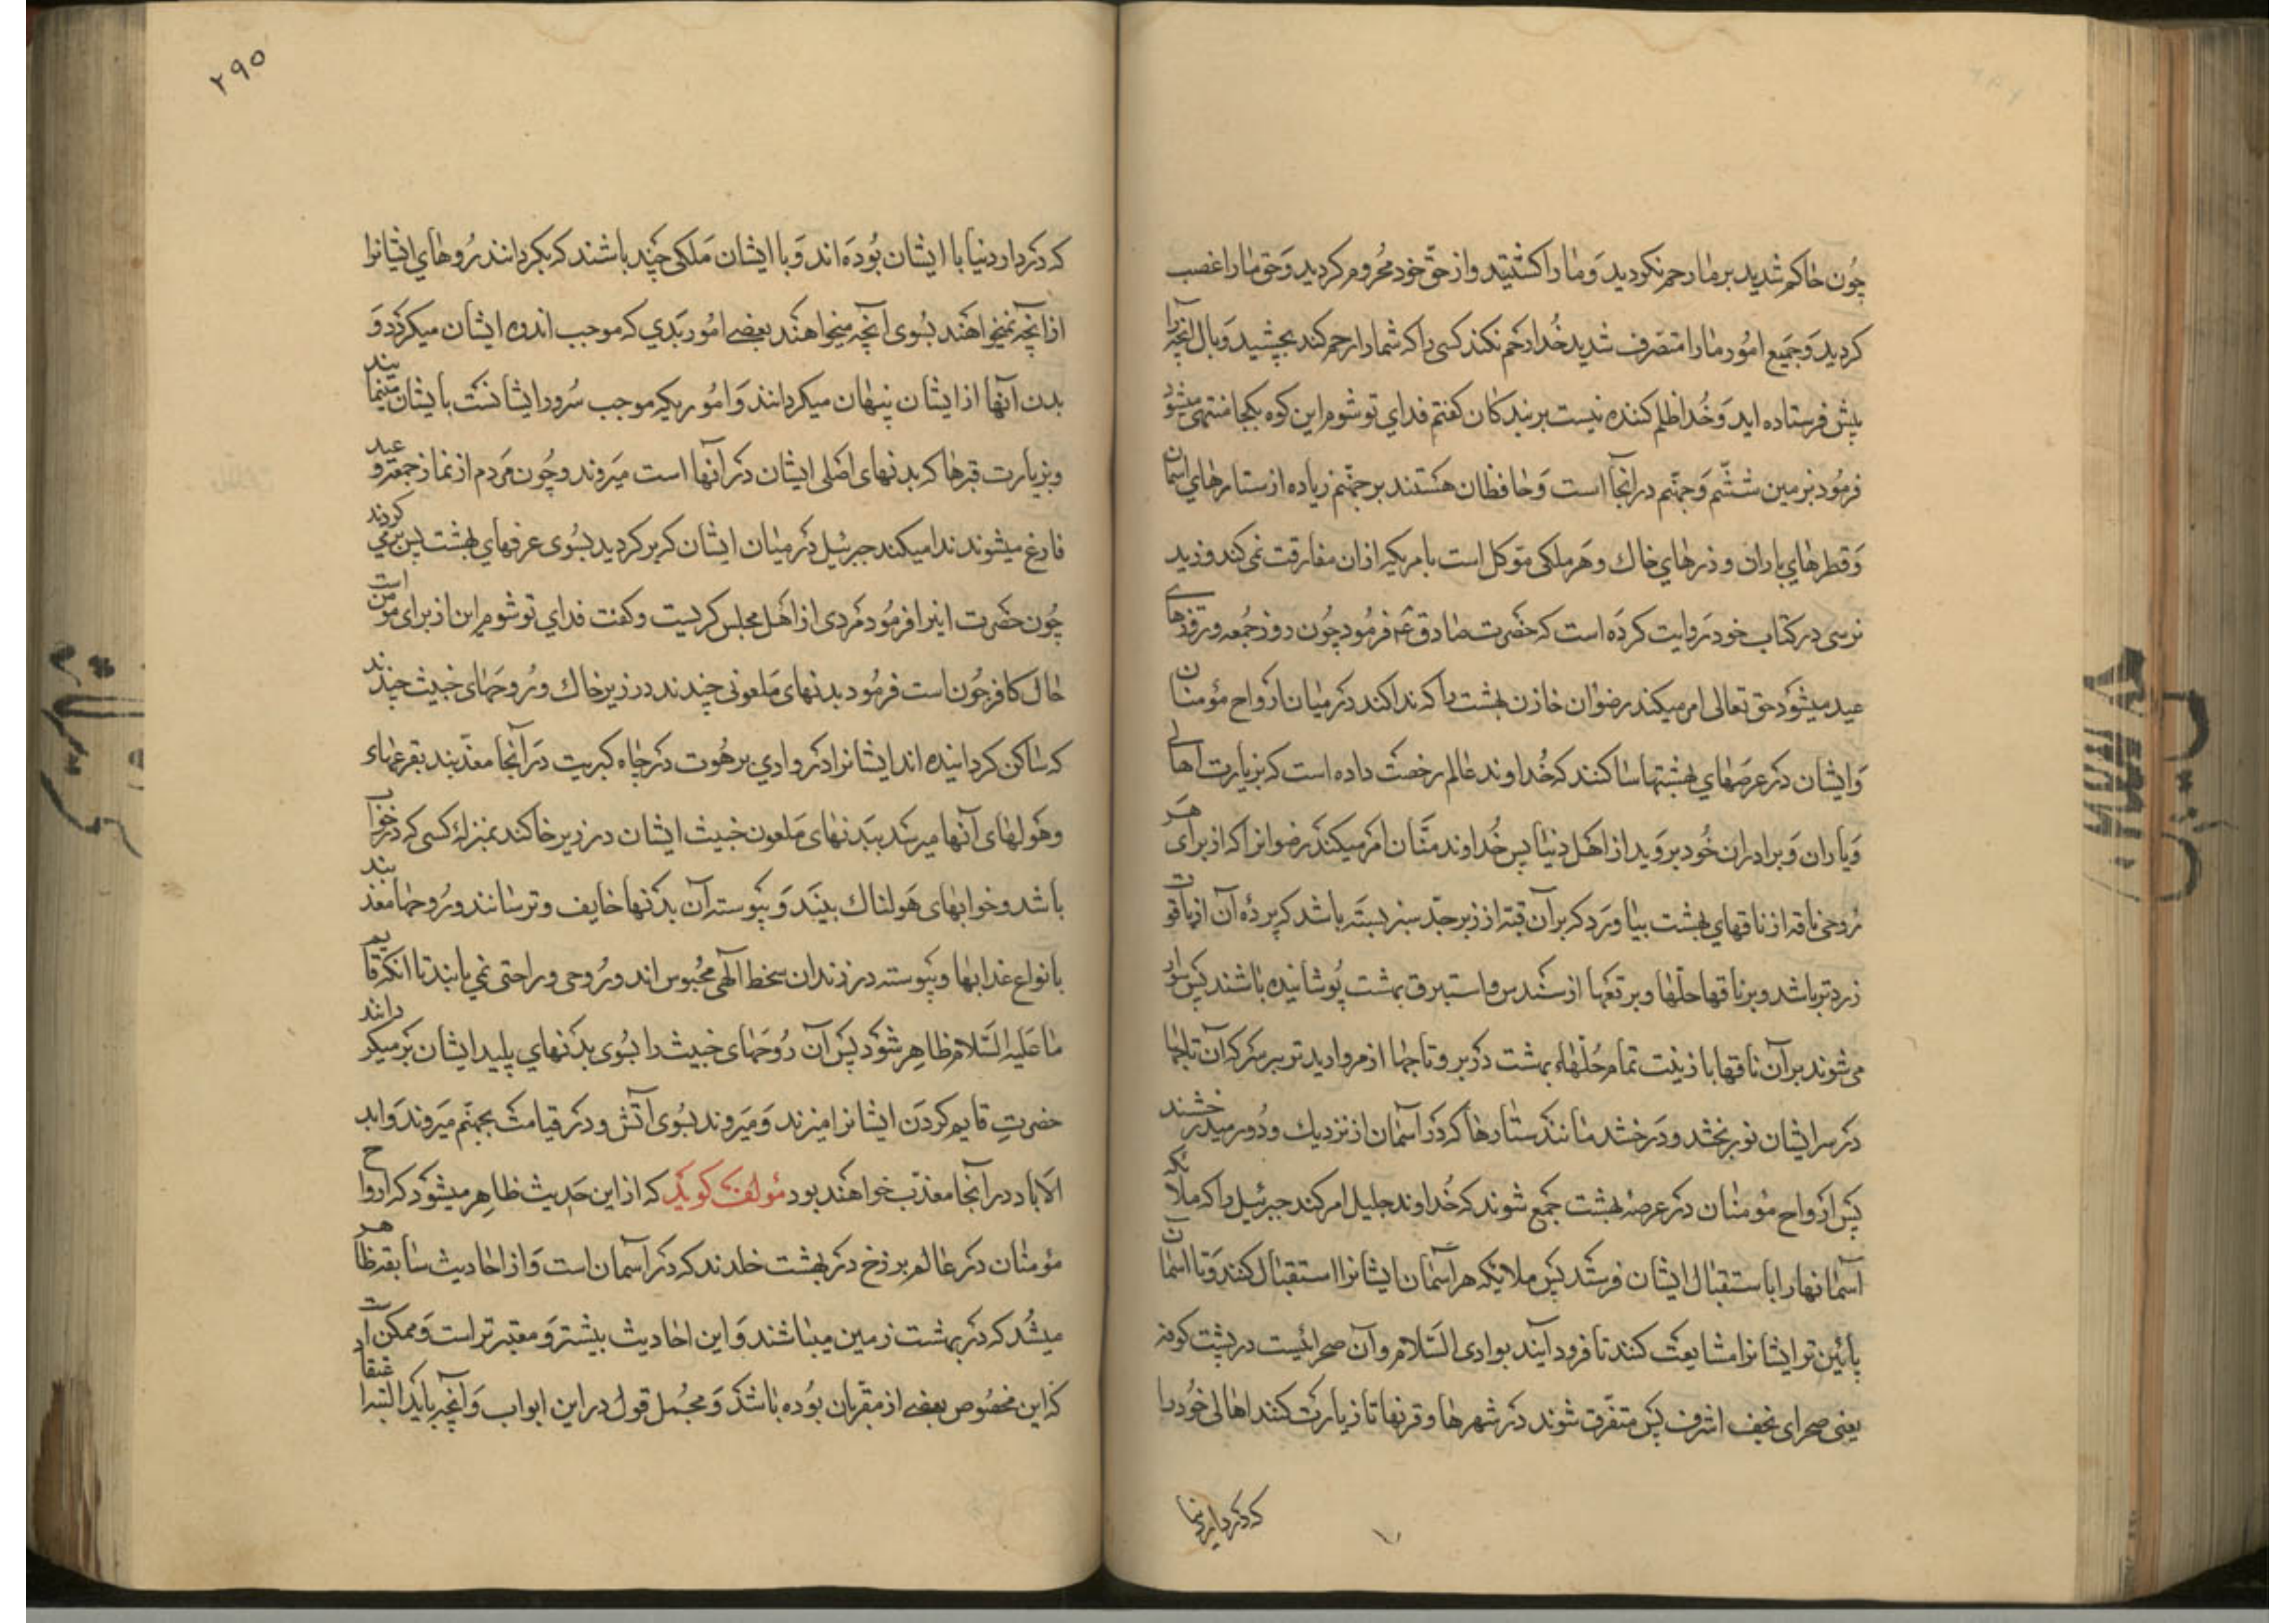 چون حاکم شدید بر ما رحم نکردید و ما را کشتید و از حق خود محروم کردید و حق ما را غصب
کردید و جمیع امور ما را متصرف شدید خدا رحم نکند کسی را که شما را رحم کند بچشید وبال انچه را
پیش فرستاده اید و خدا ظلم کننده نیست بر بندکان کفتم فدای تو شوم این کوه بکجا منتهی میشود
فرمود بزمین ششم و جهنم در انجا است و حافظان هستند بر جهنم زیاده از ستارهای اسمان
و قطرهای باران و ذرهای خاک و هر ملکی موکل است بامریکه از ان مفارقت نمی کند و زید
نرسی در کتاب خود روایت کرده است که حضرت صادق ع فرمود چون روز جمعه و روزهای
عید میشود حق تعالی امر میکند رضوان خازن بهشت را که ندا کند در میان ارواح مؤمنان
و ایشان در عرصهای بهشتها ساکنند که خداوند عالم رخصت داده است که بزیارت اهالی
و یاران و برادران خود بروید از اهل دنیا پس خداوند منان امر میکند رضوانرا که از برای هر
روحی ناقه از ناقهای بهشت بیاورد که بر آن قبه از زبرجد سبز بسته باشد که پرده آن از یاقوت
زرد تر باشد و بر ناقها حلّها و برقعها از سندس و استبرق بهشت پوشانیده باشند پس سوار
می شوند بر آن ناقها با زینت تمام حلّهاء بهشت در بر و تاجها از مروارید تر بر سر که آن تاجها
در سر ایشان نور بخشد و درخشد مانند ستارها که در آسمان از نزدیک و دور میدرخشند
پس ارواح مؤمنان در عرصهٔ بهشت جمع شوند که خداوند جلیل امر کند جبرئیل را که ملائکه
آسمانها را باستقبال ایشان فرستد پس ملایکه هر آسمان ایشانرا استقبال کنند و تا اسمان
پائین تر ایشانرا مشایعت کنند تا فرود آیند بوادی السلام و آن صحرائیست در پشت کوفه
یعنی صحرای نجف اشرف پس متفرق شوند در شهرها و قریها تا زیارت کنند اهالی خود را
که در دار دنیا
۲۹۵
که در دار دنیا با ایشان بوده اند و با ایشان ملکی چند باشند که بکردانند روهای ایشانرا
از انچه نمیخواهند بسوی آنچه میخواهند بعضی امور بدی که موجب اندوه ایشان میکردد و
بدن آنها از ایشان پنهان میکردانند و اموریکه موجب سرور ایشانست بایشان مینمایند
و بزیارت قبرها که بدنهای اصلی ایشان در آنها است میروند و چون مردم از نماز جمعه و عید
فارغ میشوند ندا میکند جبرئیل در میان ایشان که بر کردید بسوی غرفهای بهشت پس بر می کردند
چون حضرت اینرا فرمود مردی از اهل مجلس کریست و کفت فدای تو شوم این از برای مؤمن است
حال کافر چون است فرمود بدنهای ملعونی چندند در زیر خاک و روحهای خبیث چندند
که ساکن کردانیده اند ایشانرا در وادی برهوت در چاه کبریت در آنجا معذبند
و هولهای آنها میرسد ببدنهای ملعون خبیث ایشان در زیر خاکند بمنزله کسی که در خواب
باشد و خوابهای هولناک بیند و پیوسته آن بدنها خایف و ترسانند و روحها معذبند
بانواع عذابها و پیوسته در زندان سخط الهی محبوس اند و روحی و راحتی نمی یابند تا انکه قایم
ما علیه السلام ظاهر شود پس آن روحهای خبیث را بسوی بدنهای پلید ایشان بر میکردانند
حضرت قایم کردن ایشانرا میزند و میروند بسوی آتش و در قیامت بجهنم میروند و ابد
الاباد در آنجا معذب خواهند بود مؤلف کوید که از این حدیث ظاهر میشود که ارواح
مؤمنان در عالم برزخ در بهشت خلدند که در آسمان است و از احادیث سابقه ظاهر
میشد که در بهشت زمین میباشند و این احادیث بیشتر و معتبر تر است و ممکن است
که این مخصوص بعضی از مقربان بوده باشد و مجمل قول در این ابواب و آنچه باید البته اعتقاد